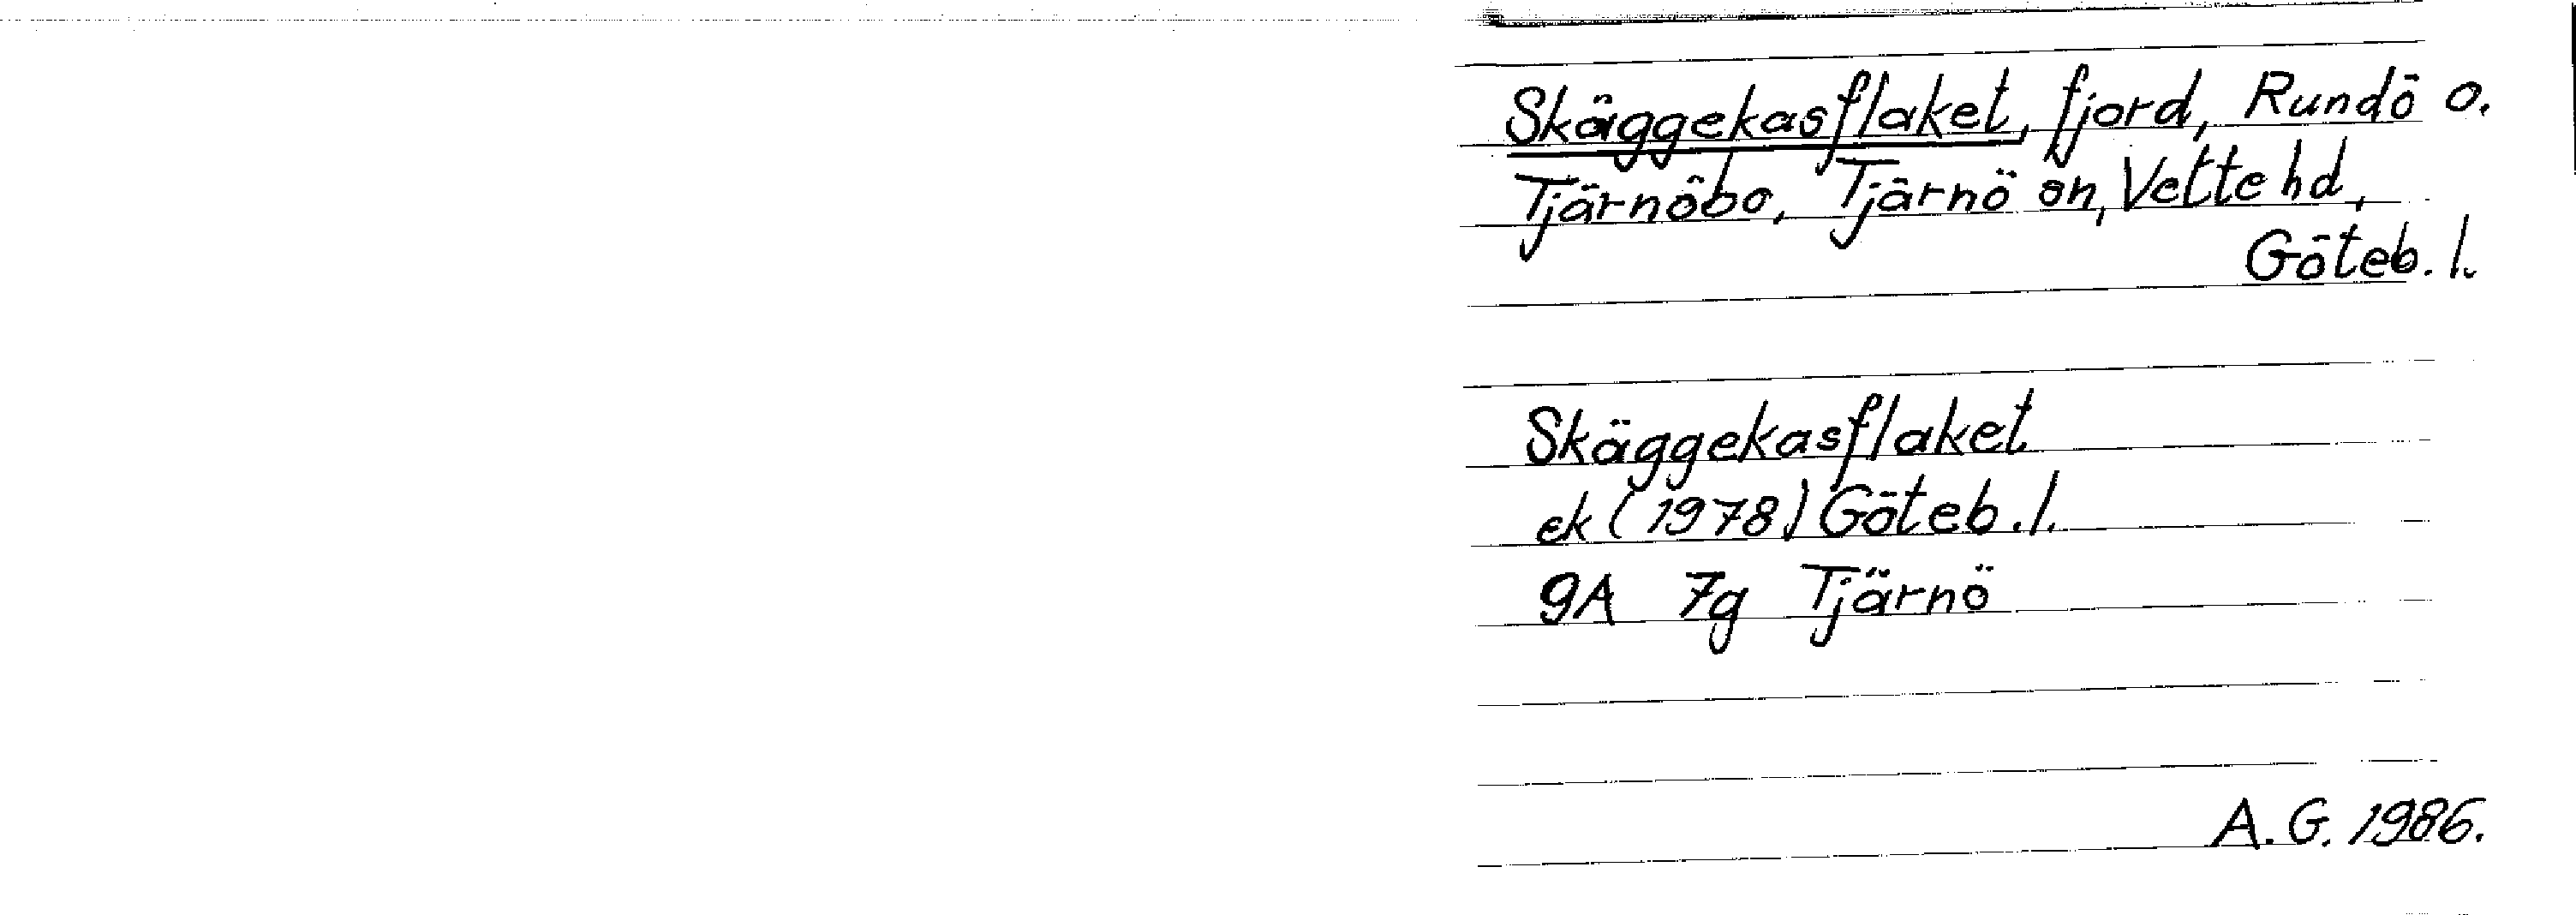 Skäggekasflaket, fjord, Rundö o.
Tjärnöbo, Tjärnö sn, Vette hd,
Göteb. l.
Skäggekasflaket
ek (1978) Göteb. l.
9A 7g Tjärnö
A. G. 1986.